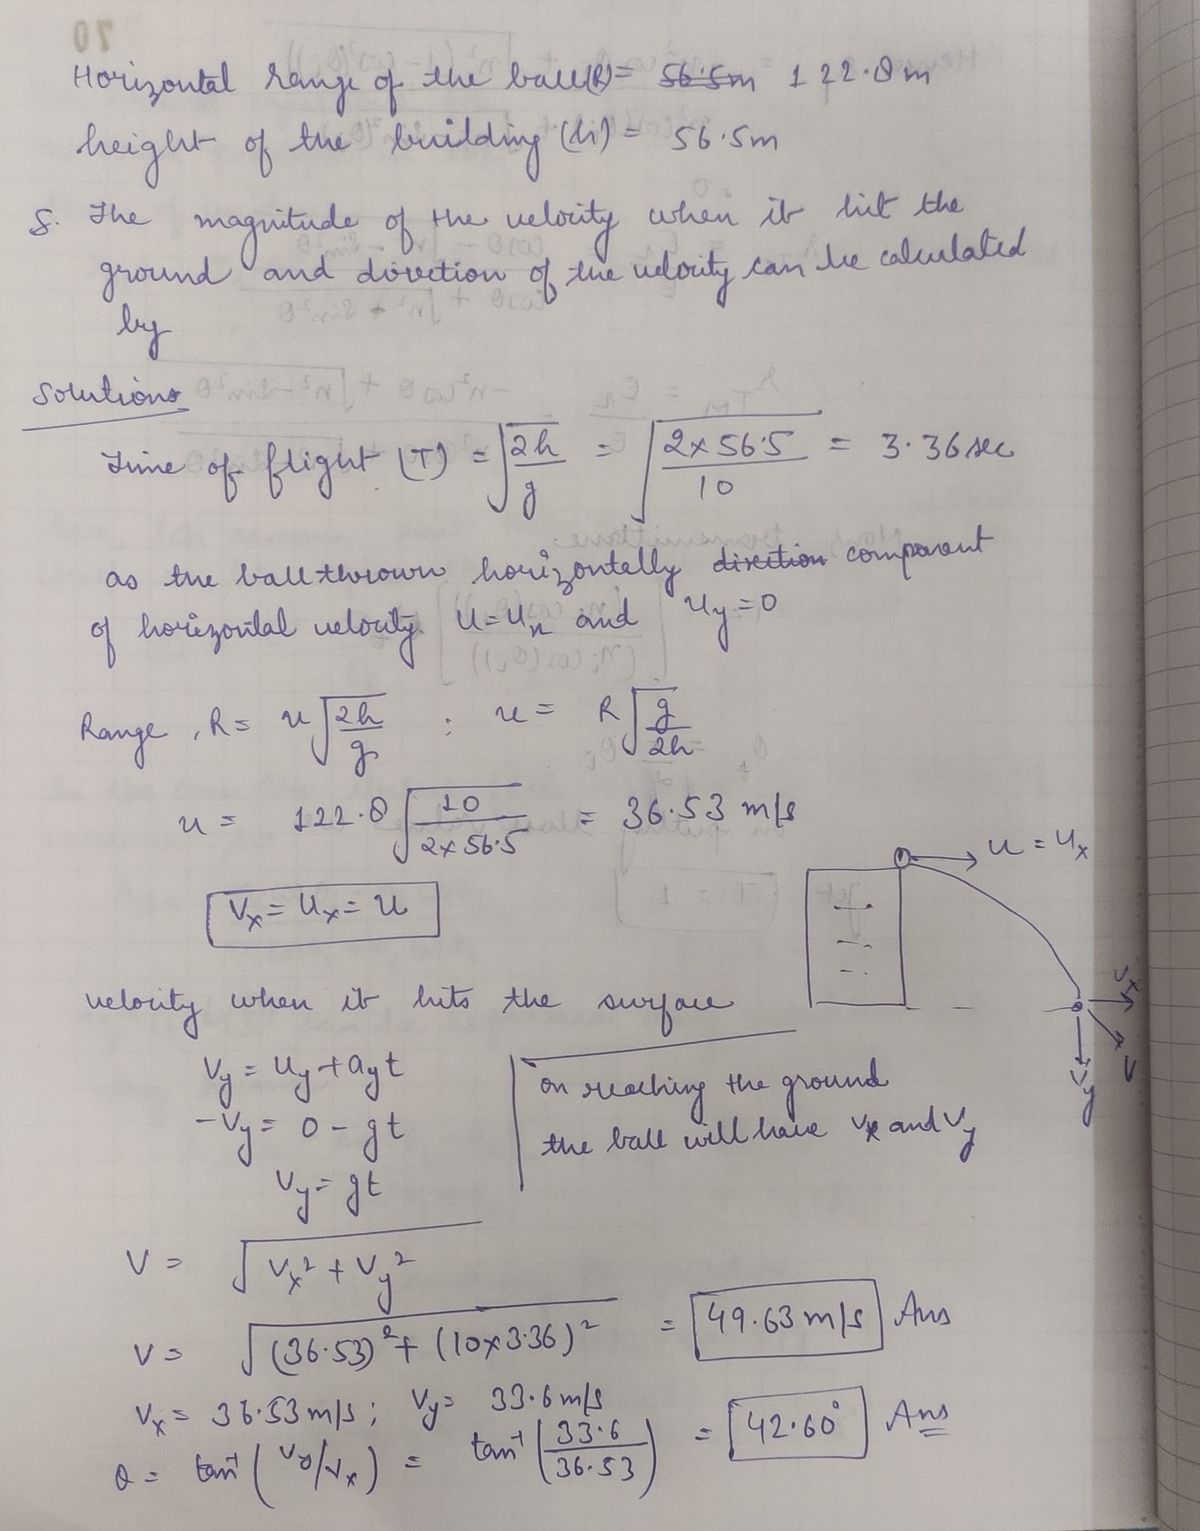 70
Horizontal range of the ball(R)= 56.5m 122.8m
height of the building (h) = 56.5m
8. The magnitude of the velocity when it hit the
ground and direction of the velocity can be calculated
by
Solutions
Time of flight (T) = √(2h/g) = √(2×56.5/10) = 3.36 sec
as the ball thrown horizontally direction component
of horizontal velocity. U=Ux and Uy=0
Range, R= u√(2h/g) ; u = R√(g/2h)
u = 122.8√(10/2×56.5) = 36.53 m/s
u = ux
Vx = Ux = U
velocity when it hits the surface
Vx
V
Vy
Vy = Uy + ayt
-Vy = 0 - gt
Vy = gt
on reaching the ground
the ball will have Vx and Vy
V = √(Vx² + Vy²)
V = √((36.53)² + (10×3.36)²) = 49.63 m/s Ans
Vx = 36.53 m/s ; Vy = 33.6 m/s
θ = tan⁻¹(Vy/Vx) = tan⁻¹(33.6/36.53) = 42.60° Ans